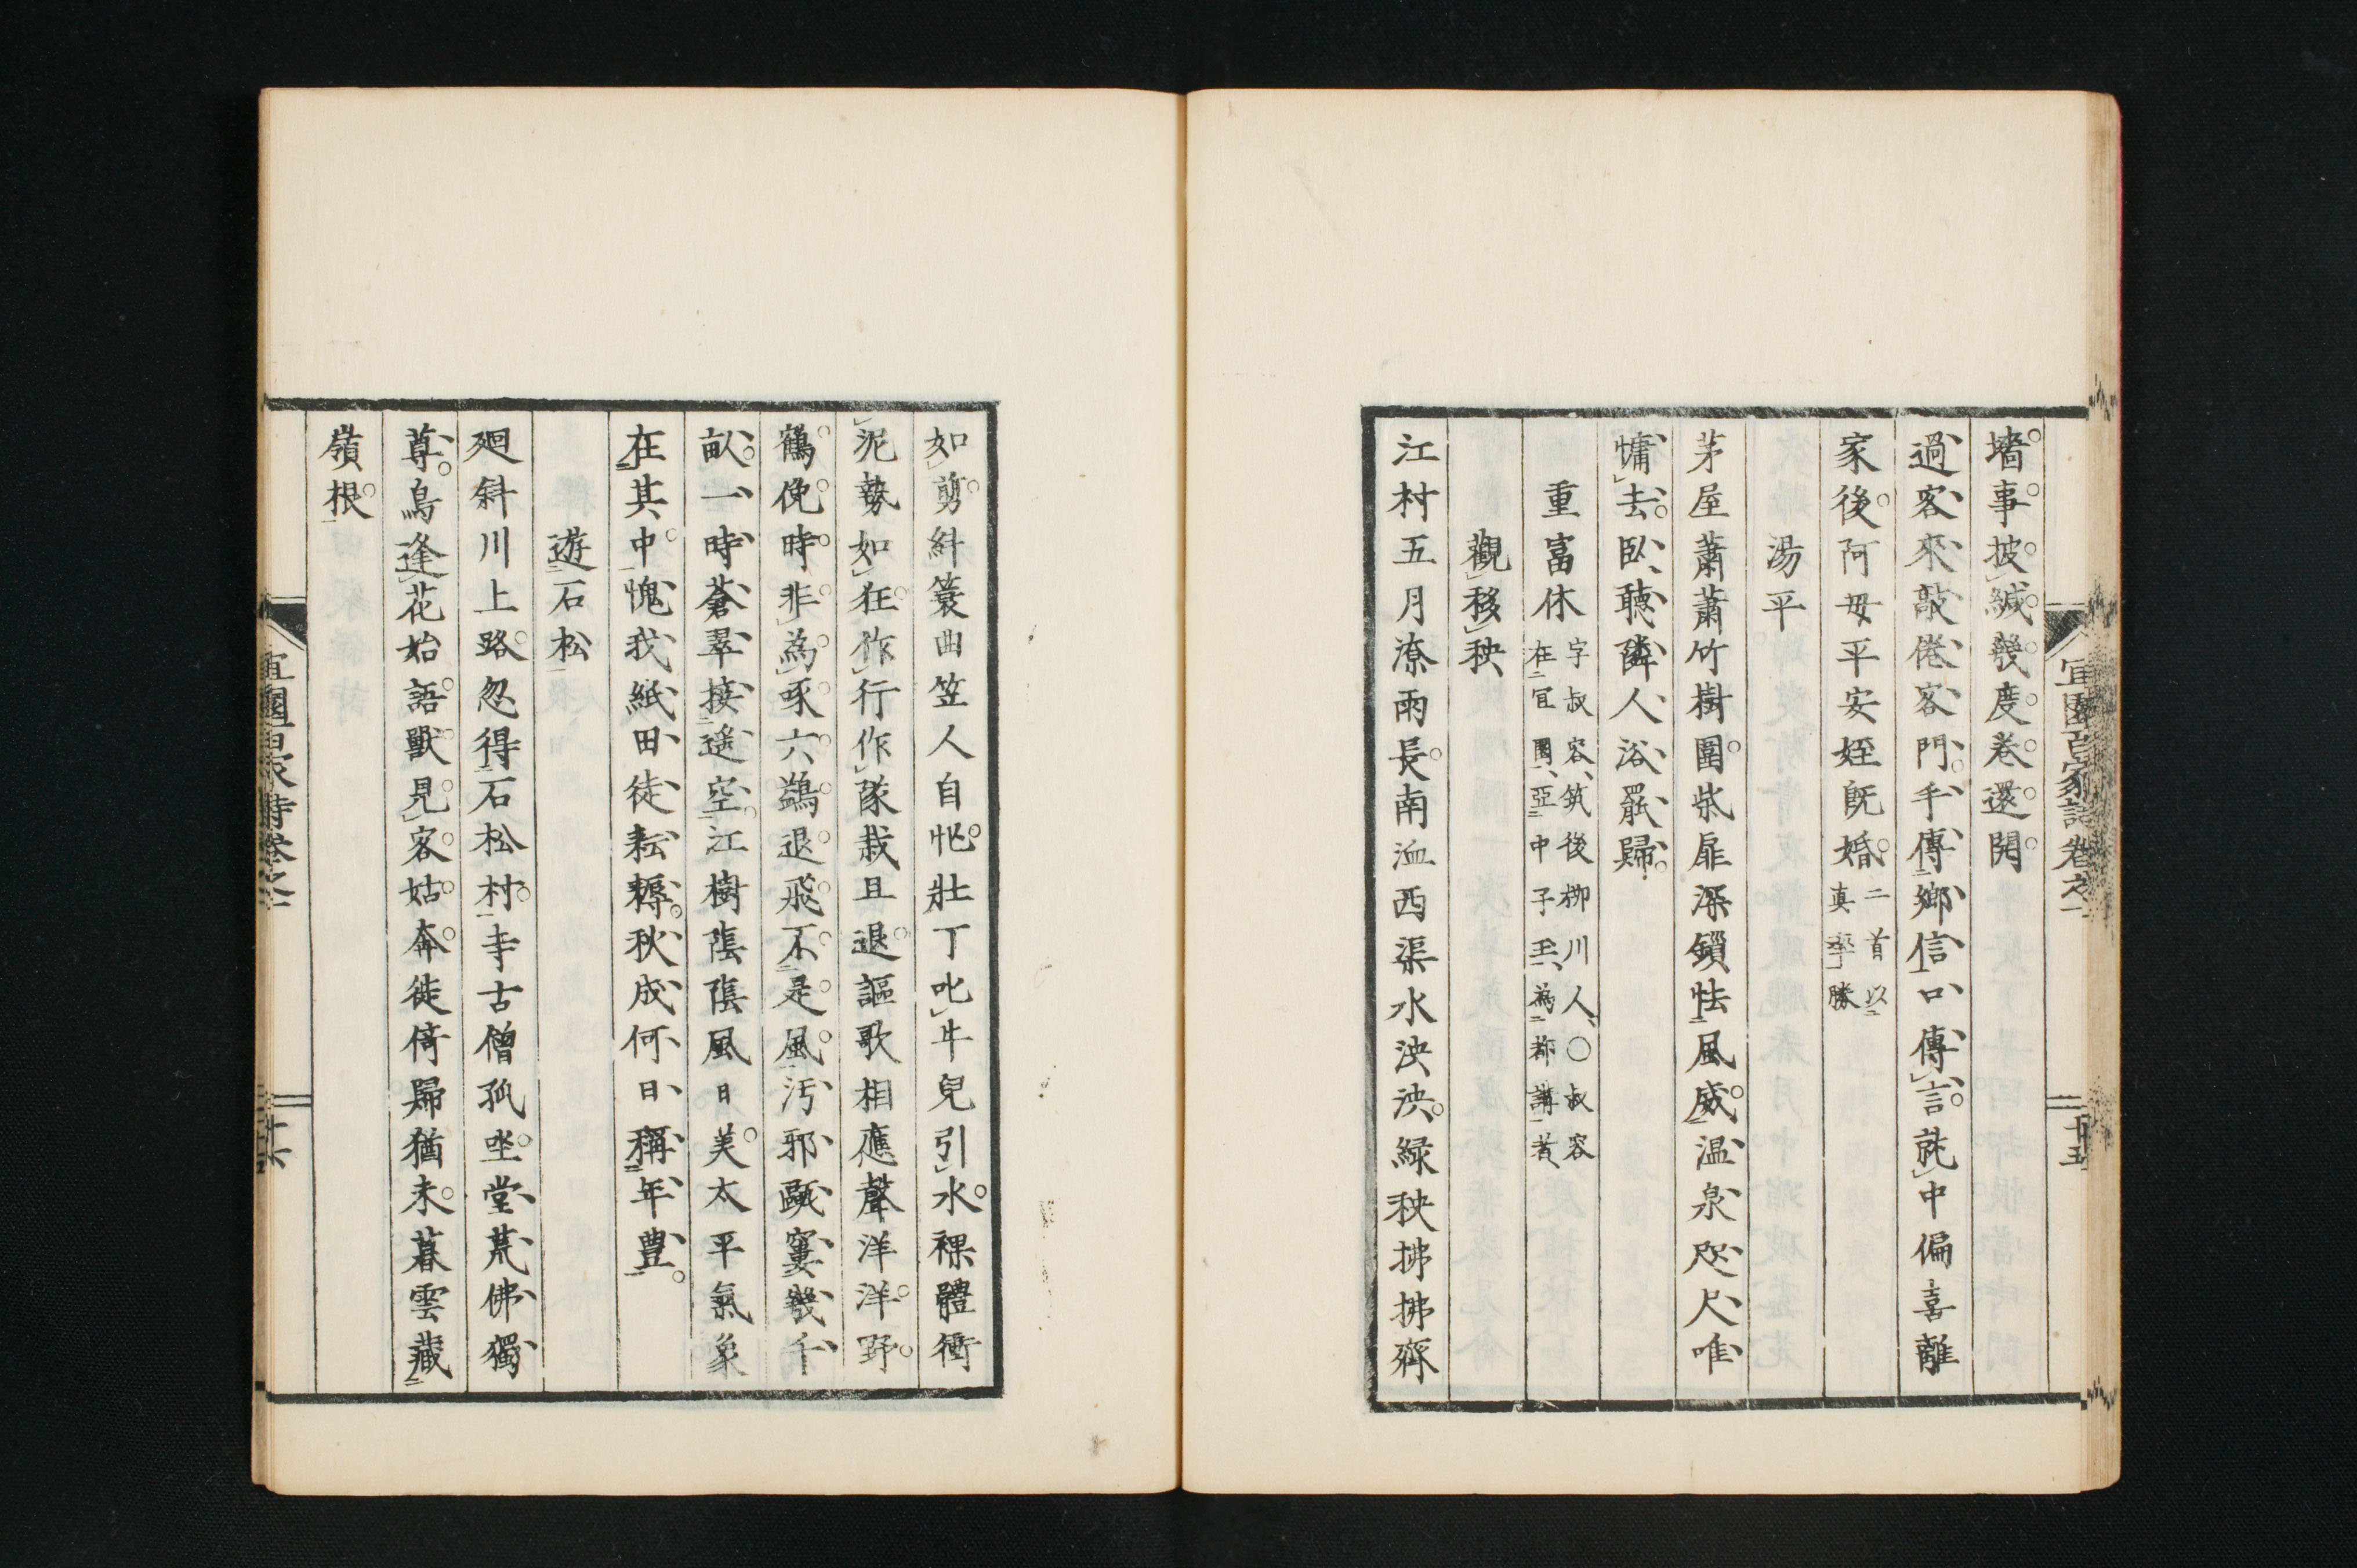 宜園百家詩卷之一 十五
墻事披緘幾度卷還開
過客來敲倦客門手傳鄉信口傳言就中偏喜離
家後阿毋平安姪旣婚 二首以
真率勝
湯平
茅屋蕭蕭竹樹圍柴扉深鎖怯風威温泉咫尺唯
慵去臥聽隣人浴罷歸
重富休 字叔容筑後柳川人○叔容
在宜園亞中子玉為都講者
觀移秧
江村五月潦雨長南洫西渠水泱泱緑秧拂拂齊
如剪糾簑曲笠人自忙壯丁叱牛兒引水裸體衝
泥勢如狂作行作隊栽且退謳歌相應聲洋洋野
鶴俛時非為啄六鷁退飛不是風汚邪甌窶幾千
畝一時蒼翠接遥空江樹蔭蔭風日美太平氣象
在其中愧我紙田徒耘耨秋成何日稱年豊
遊石松
廻斜川上路忽得石松村寺古僧孤坐堂荒佛獨
尊鳥逢花始語獸見客姑奔徙倚歸猶未暮雲藏
嶺根
宜園百家詩卷之一 十六